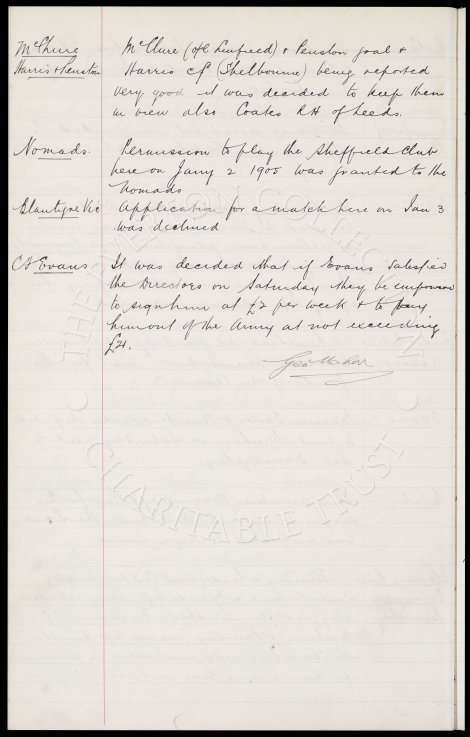 McClure McClure (HB Linfield) & Penston goal &
Harris & Penston Harris CF (Shelbourne) being reported
very good it was decided to keep them
in view also Coates RH of Leeds.
Nomads. Permission to play the Sheffield Club
here on Jany 2 1905 was granted to the
Nomads
Blantyre Vic Application for a match here on Jan 3
was declined
Evans It was decided that if Evans satisfied
the Directors on Saturday they be empowered
to sign him at £2 per week & to pay
him out of the Army at not exceeding
£21.
Geo Mahon
THE EVERTON COLLECTION
CHARITABLE TRUST